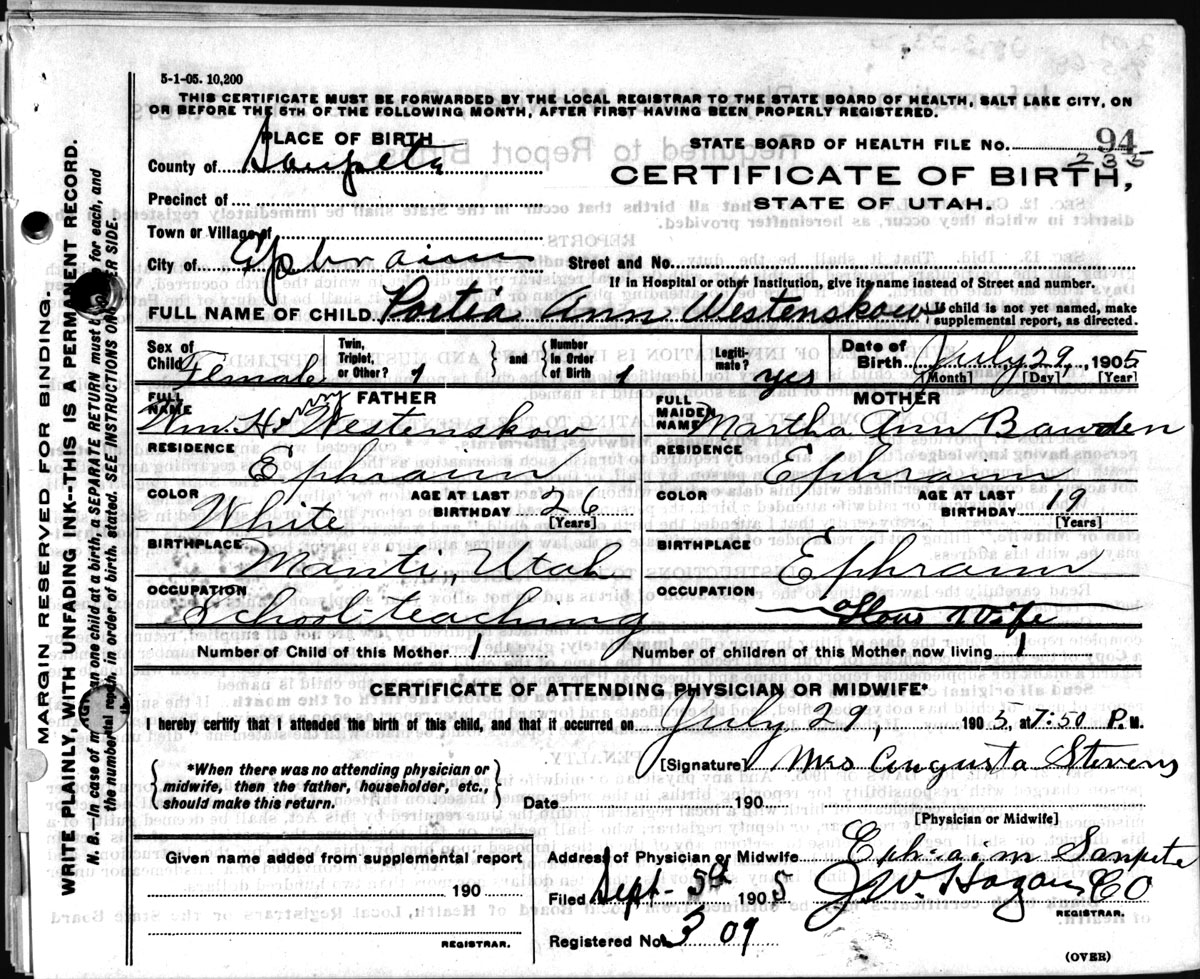 5-1-05. 10,200
THIS CERTIFICATE MUST BE FORWARDED BY THE LOCAL REGISTRAR TO THE STATE BOARD OF HEALTH, SALT LAKE CITY, ON
OR BEFORE THE 5TH OF THE FOLLOWING MONTH, AFTER FIRST HAVING BEEN PROPERLY REGISTERED.
PLACE OF BIRTH
STATE BOARD OF HEALTH FILE NO. 94
235
County of Sanpete
CERTIFICATE OF BIRTH,
Precinct of
STATE OF UTAH.
Town or Village of
City of Ephraim Street and No.
If in Hospital or other Institution, give its name instead of Street and number.
FULL NAME OF CHILD Portia Ann Westenskow
If child is not yet named, make
supplemental report, as directed.
Sex of Child Female
Twin, Triplet, or Other? 1
and
Number in Order of Birth 1
Legiti-mate? yes
Date of Birth July 29, 1905
[Month] [Day] [Year]
FATHER
FULL NAME Wm. Henry Westenskow
RESIDENCE Ephraim
COLOR White
AGE AT LAST BIRTHDAY 26
[Years]
BIRTHPLACE Manti, Utah
OCCUPATION School-teaching
MOTHER
FULL MAIDEN NAME Martha Ann Bawden
RESIDENCE Ephraim
COLOR
AGE AT LAST BIRTHDAY 19
[Years]
BIRTHPLACE Ephraim
OCCUPATION Hous Wife
Number of Child of this Mother 1
Number of children of this Mother now living 1
CERTIFICATE OF ATTENDING PHYSICIAN OR MIDWIFE*
I hereby certify that I attended the birth of this child, and that it occurred on July 29, 1905, at 7:50 P. M.
*When there was no attending physician or
midwife, then the father, householder, etc.,
should make this return.
[Signature] Mrs Augusta Stevens
Date 190
[Physician or Midwife]
Given name added from supplemental report
190
REGISTRAR.
Address of Physician or Midwife Ephraim Sanpete CO
Filed Sept. 5th 1905 J. W. Hagan
REGISTRAR.
Registered No. 309
(OVER)
MARGIN RESERVED FOR BINDING.
WRITE PLAINLY, WITH UNFADING INK--THIS IS A PERMANENT RECORD.
N. B.—In case of more than one child at a birth, a SEPARATE RETURN must be made for each, and
the number of each, in order of birth, stated. SEE INSTRUCTIONS ON OTHER SIDE.